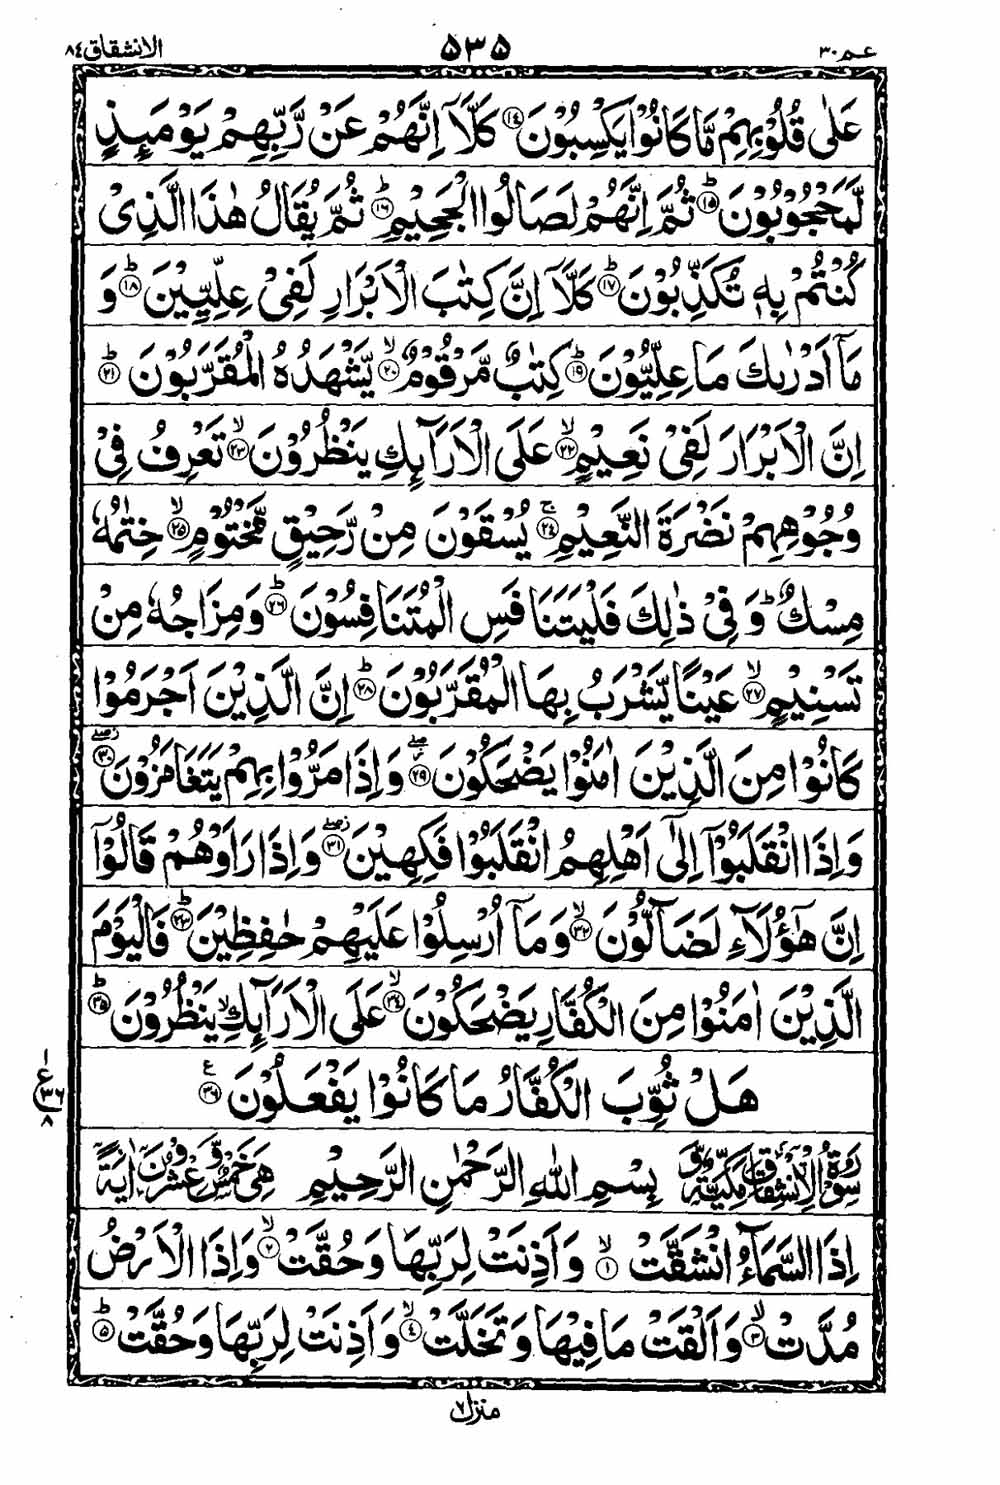 عـم ٣٠ ۵۳۵ الانشقاق ٨٤
عَلٰى قُلُوْبِهِمْ مَّا كَانُوْا يَكْسِبُوْنَ ﴿١٤﴾ كَلَّاۤ اِنَّهُمْ عَنْ رَّبِّهِمْ يَوْمَئِذٍ
لَّمَحْجُوْبُوْنَ ﴿١٥﴾ؕ ثُمَّ اِنَّهُمْ لَصَالُوا الْجَحِيْمِ ﴿١٦﴾ؕ ثُمَّ يُقَالُ هٰذَا الَّذِىْ
كُنْتُمْ بِهٖ تُكَذِّبُوْنَ ﴿١٧﴾ؕ كَلَّاۤ اِنَّ كِتٰبَ الْاَبْرَارِ لَفِىْ عِلِّيِّيْنَ ﴿١٨﴾ؕ وَ
مَاۤ اَدْرٰىكَ مَا عِلِّيُّوْنَ ﴿١٩﴾ؕ كِتٰبٌ مَّرْقُوْمٌ ﴿٢٠﴾ۙ يَّشْهَدُهُ الْمُقَرَّبُوْنَ ﴿٢١﴾ؕ
اِنَّ الْاَبْرَارَ لَفِىْ نَعِيْمٍ ﴿٢٢﴾ۙ عَلَى الْاَرَآئِكِ يَنْظُرُوْنَ ﴿٢٣﴾ۙ تَعْرِفُ فِىْ
وُجُوْهِهِمْ نَضْرَةَ النَّعِيْمِ ﴿٢٤﴾ۚ يُسْقَوْنَ مِنْ رَّحِيْقٍ مَّخْتُوْمٍ ﴿٢٥﴾ۙ خِتٰمُهٗ
مِسْكٌ ؕ وَفِىْ ذٰلِكَ فَلْيَتَنَافَسِ الْمُتَنَافِسُوْنَ ﴿٢٦﴾ؕ وَمِزَاجُهٗ مِنْ
تَسْنِيْمٍ ﴿٢٧﴾ۙ عَيْنًا يَّشْرَبُ بِهَا الْمُقَرَّبُوْنَ ﴿٢٨﴾ؕ اِنَّ الَّذِيْنَ اَجْرَمُوْا
كَانُوْا مِنَ الَّذِيْنَ اٰمَنُوْا يَضْحَكُوْنَ ﴿٢٩﴾ۖ وَاِذَا مَرُّوْا بِهِمْ يَتَغَامَزُوْنَ ﴿٣٠﴾ۖ
وَاِذَا انْقَلَبُوْۤا اِلٰٓى اَهْلِهِمُ انْقَلَبُوْا فَكِهِيْنَ ﴿٣١﴾ۖ وَاِذَا رَاَوْهُمْ قَالُوْۤا
اِنَّ هٰۤؤُلَاۤءِ لَضَآلُّوْنَ ﴿٣٢﴾ۙ وَمَاۤ اُرْسِلُوْا عَلَيْهِمْ حٰفِظِيْنَ ﴿٣٣﴾ؕ فَالْيَوْمَ
الَّذِيْنَ اٰمَنُوْا مِنَ الْكُفَّارِ يَضْحَكُوْنَ ﴿٣٤﴾ۙ عَلَى الْاَرَآئِكِ ۙ يَنْظُرُوْنَ ﴿٣٥﴾ؕ
هَلْ ثُوِّبَ الْكُفَّارُ مَا كَانُوْا يَفْعَلُوْنَ ﴿٣٦﴾ع
١ ع ٣٦ ٨
سُوْرَةُ الْاِنْشِقَاقِ مَكِّيَّةٌ وَّ بِسْمِ اللهِ الرَّحْمٰنِ الرَّحِيْمِ هِىَ خَمْسٌ وَّعِشْرُوْنَ اٰيَةً
اِذَا السَّمَآءُ انْشَقَّتْ ﴿١﴾ۙ وَاَذِنَتْ لِرَبِّهَا وَحُقَّتْ ﴿٢﴾ۙ وَاِذَا الْاَرْضُ
مُدَّتْ ﴿٣﴾ۙ وَاَلْقَتْ مَا فِيْهَا وَتَخَلَّتْ ﴿٤﴾ۙ وَاَذِنَتْ لِرَبِّهَا وَحُقَّتْ ﴿٥﴾ؕ
منزل ٧